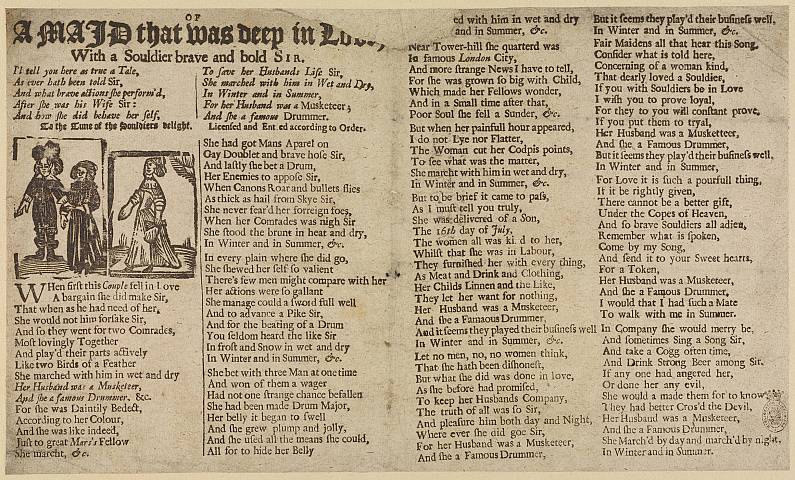 OF
A MAID that was deep in Love,
With a Souldier brave and bold SIR.
I'l tell you here as true a Tale,
As ever hath been told Sir,
And what brave actions she perform'd,
After she was his Wife Sir:
And how she did behave her self,
To save her Husbands Life Sir,
She marched with him in Wet and Dry,
In Winter and in Summer,
For her Husband was a Musketeer;
And she a famous Drummer.
To the Tune of the Souldiers delight.
Licensed and Ent ed according to Order.
WHen first this Couple fell in Love
A bargain she did make Sir,
That when as he had need of her,
She would not him forsake Sir,
And so they went for two Comrades,
Most lovingly Together
And play'd their parts actively
Like two Birds of a Feather
She marched with him in wet and dry
Her Husband was a Musketeer,
And she a famous Drummer. &c.
For she was Daintily Bedect,
According to her Colour,
And she was like indeed,
Just to great Mars's Fellow
She marcht, &c.
She had got Mans Aparel on
Gay Doublet and brave hose Sir,
And lastly she bet a Drum,
Her Enemies to appose Sir,
When Canons Roar and bullets flies
As thick as hail from Skye Sir,
She never fear'd her foreign foes,
When her Comrades was nigh Sir
She stood the brunt in heat and dry,
In Winter and in Summer, &c.
In every plain where she did go,
She shewed her self so valient
There's few men might compare with her
Her actions were so gallant
She manage could a sword full well
And to advance a Pike Sir,
And for the beating of a Drum
You seldom heard the like Sir
In frost and Snow in wet and dry
In Winter and in Summer, &c.
She bet with three Man at one time
And won of them a wager
Had not one strange chance befallen
She had been made Drum Major,
Her belly it began to swell
And she grew plump and jolly,
And she used all the means she could,
All for to hide her Belly
ed with him in wet and dry
and in Summer, &c.
Near Tower-hill she quarterd was
In famous London City,
And more strange News I have to tell,
For she was grown so big with Child,
Which made her Fellows wonder,
And in a Small time after that,
Poor Soul she fell a Sunder, &c.
But when her painfull hour appeared,
I do not Lye nor Flatter,
The Woman cut her Codpis points,
To see what was the matter,
She marcht with him in wet and dry,
In Winter and in Summer, &c.
But to be brief it came to pass,
As I must tell you truly,
She was delivered of a Son,
The 16th day of July,
The women all was ki d to her,
Whilst that she was in Labour,
They furnished her with every thing,
As Meat and Drink and Clothing,
Her Childs Linnen and the Like,
They let her want for nothing,
Her Husband was a Musketeer,
And she a Famaous Drummer.
And it seems they played their business well
In Winter and in Summer, &c.
Let no men, no, no women think,
That she hath been dishonest,
But what she did was done in love,
As she before had promised,
To keep her Husbands Company,
The truth of all was so Sir,
And pleasure him both day and Night,
Where ever she did goe Sir,
For her Husband was a Musketeer,
And she a Famous Drummer,
But it seems they play'd their business well,
In Winter and in Summer, &c.
Fair Maidens all that hear this Song,
Consider what is told here,
Concerning of a woman kind,
That dearly loved a Souldier,
If you with Souldiers be in Love
I wish you to prove loyal,
For they to you will constant prove,
If you put them to tryal,
Her Husband was a Musketteer,
And she a Famous Drummer,
But it seems they play'd their business well,
In Winter and in Summer,
For Love it is such a pourfull thing,
If it be rightly given,
There cannot be a better gift,
Under the Copes of Heaven,
And so brave Souldiers all adieu,
Remember what is spoken,
Come by my Song,
And send it to your Sweet hearts,
For a Token,
Her Husband was a Musketeer,
And she a Famous Drummer,
I would that I had such a Mate
To walk with me in Summer.
In Company she would merry be,
And sometimes Sing a Song Sir,
And take a Cogg often time,
And Drink Strong Beer among Sir.
If any one had angered her,
Or done her any evil,
She would a made them for to know
They had better Cros'd the Devil,
Her Husband was a Musketeer,
And she a Famous Drummer,
She March'd by day and march'd by night,
In Winter and in Summer.